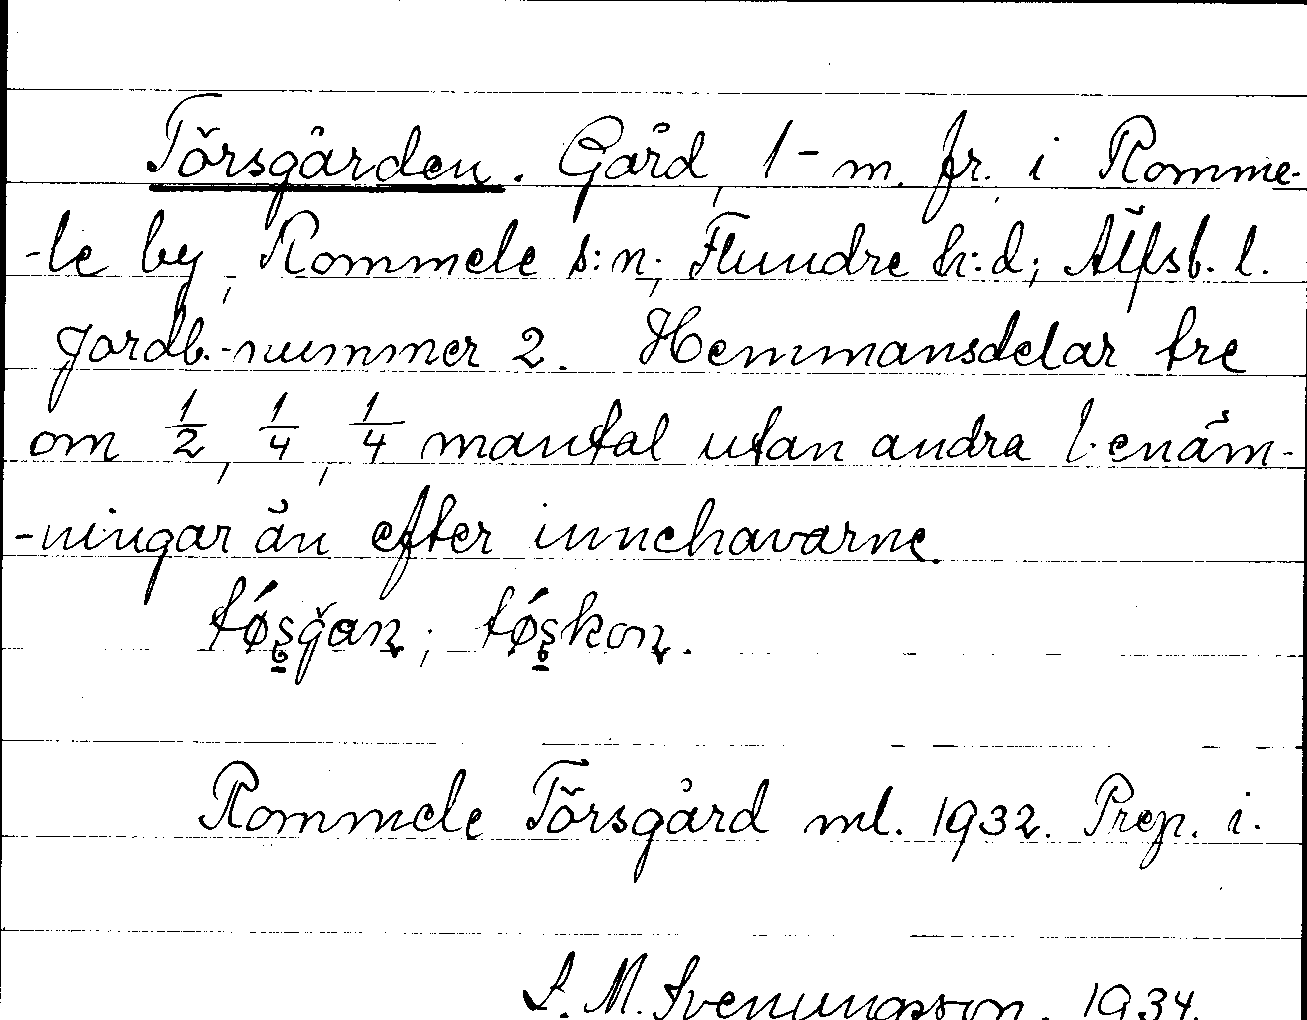 Törsgården. Gård, 1- m. fr. i Romme-
-le by, Rommele s:n; Flundre h:d; Älfsb. l.
Jordb.-nummer 2. Hemmansdelar tre
om 1/2, 1/4, 1/4 mantal utan andra benäm-
-ningar än efter innehavarne.
Rommele Törsgård ml. 1932. Prep. i.
S. M. Svenungsson. 1934.